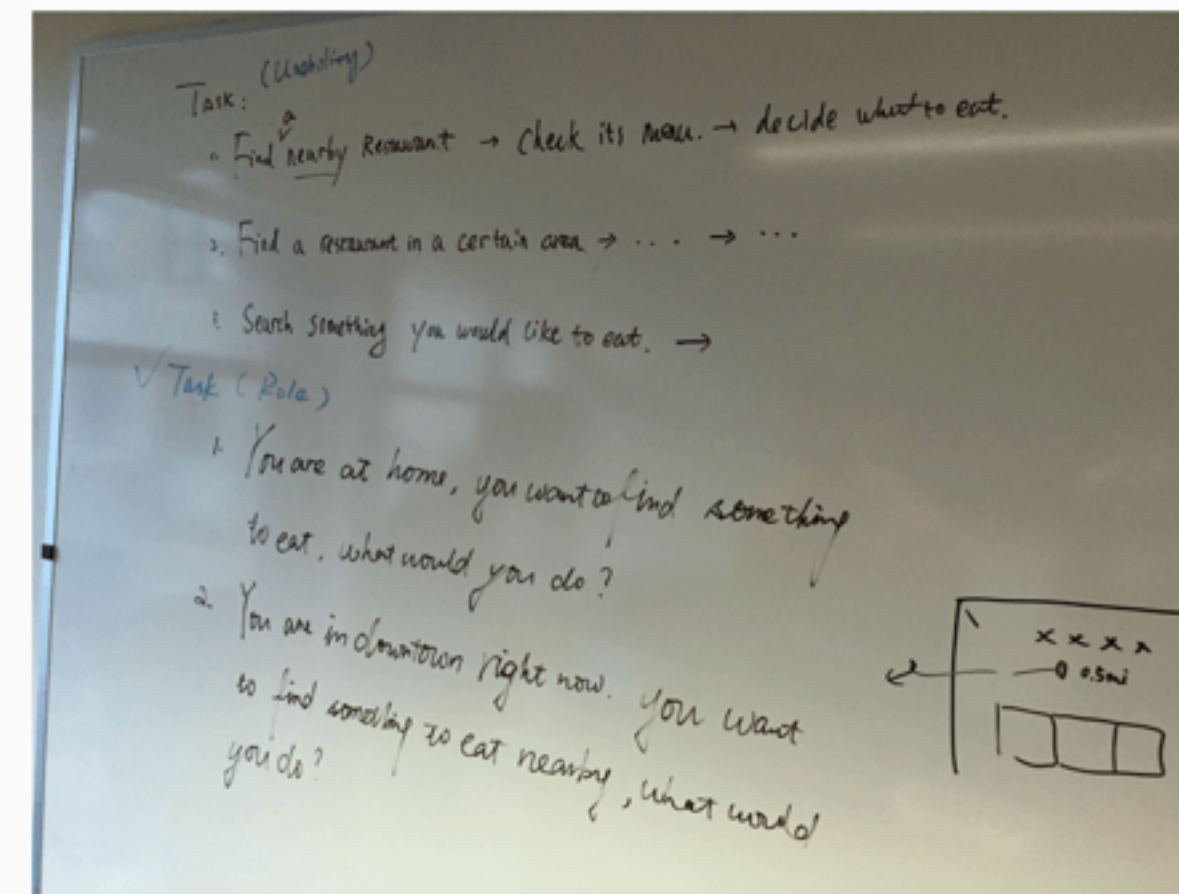 Task: (Usability)
1. Find a nearby Restaurant → Check its menu. → decide what to eat.
2. Find a restaurant in a certain area → .... → ...
3. Search something you would like to eat. →
✓ Task (Role)
1. You are at home, you want to find something
to eat. what would you do?
2. You are in downtown right now. you want
to find something to eat nearby, what would
you do?
x x x x
0.5mi